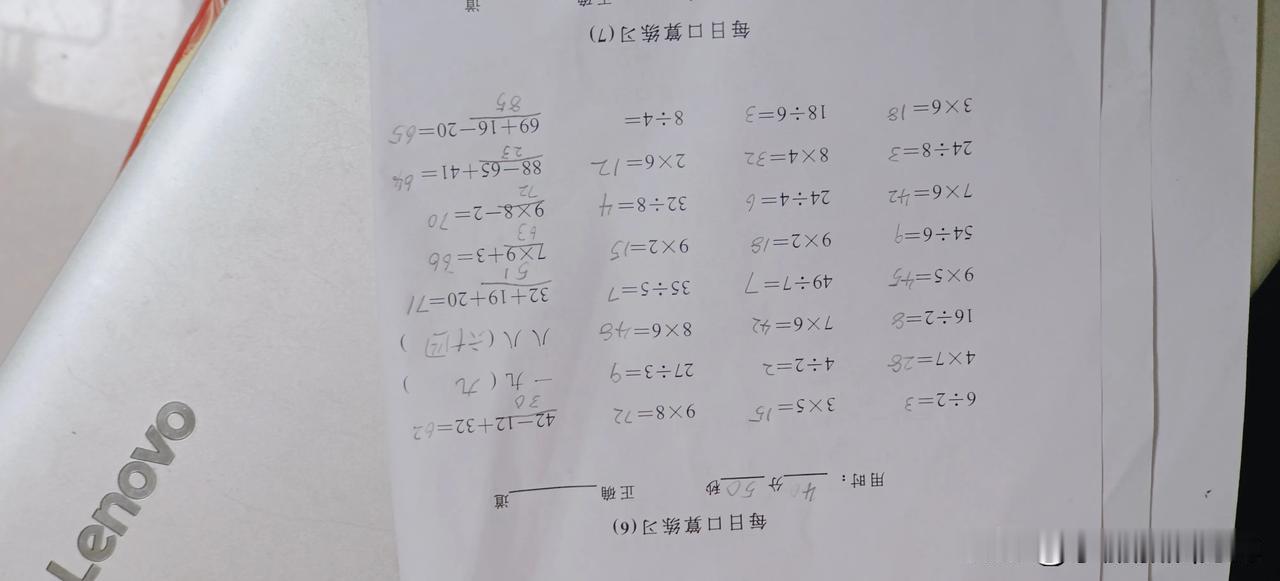 每日口算练习(6)
用时: 40分50秒 正确____道
6÷2=3 3×5=15 9×8=72 42−12+32=62
30
4×7=28 4÷2=2 27÷3=9 一九(九)
16÷2=8 7×6=42 8×6=48 八八(六十四)
9×5=45 49÷7=7 35÷5=7 32+19+20=71
51
54÷6=9 9×2=18 9×2=15 7×9+3=66
63
7×6=42 24÷4=6 32÷8=4 9×8−2=70
72
24÷8=3 8×4=32 2×6=12 88−65+41=64
23
3×6=18 18÷6=3 8÷4= 69+16−20=65
85
每日口算练习(7)
道
Lenovo